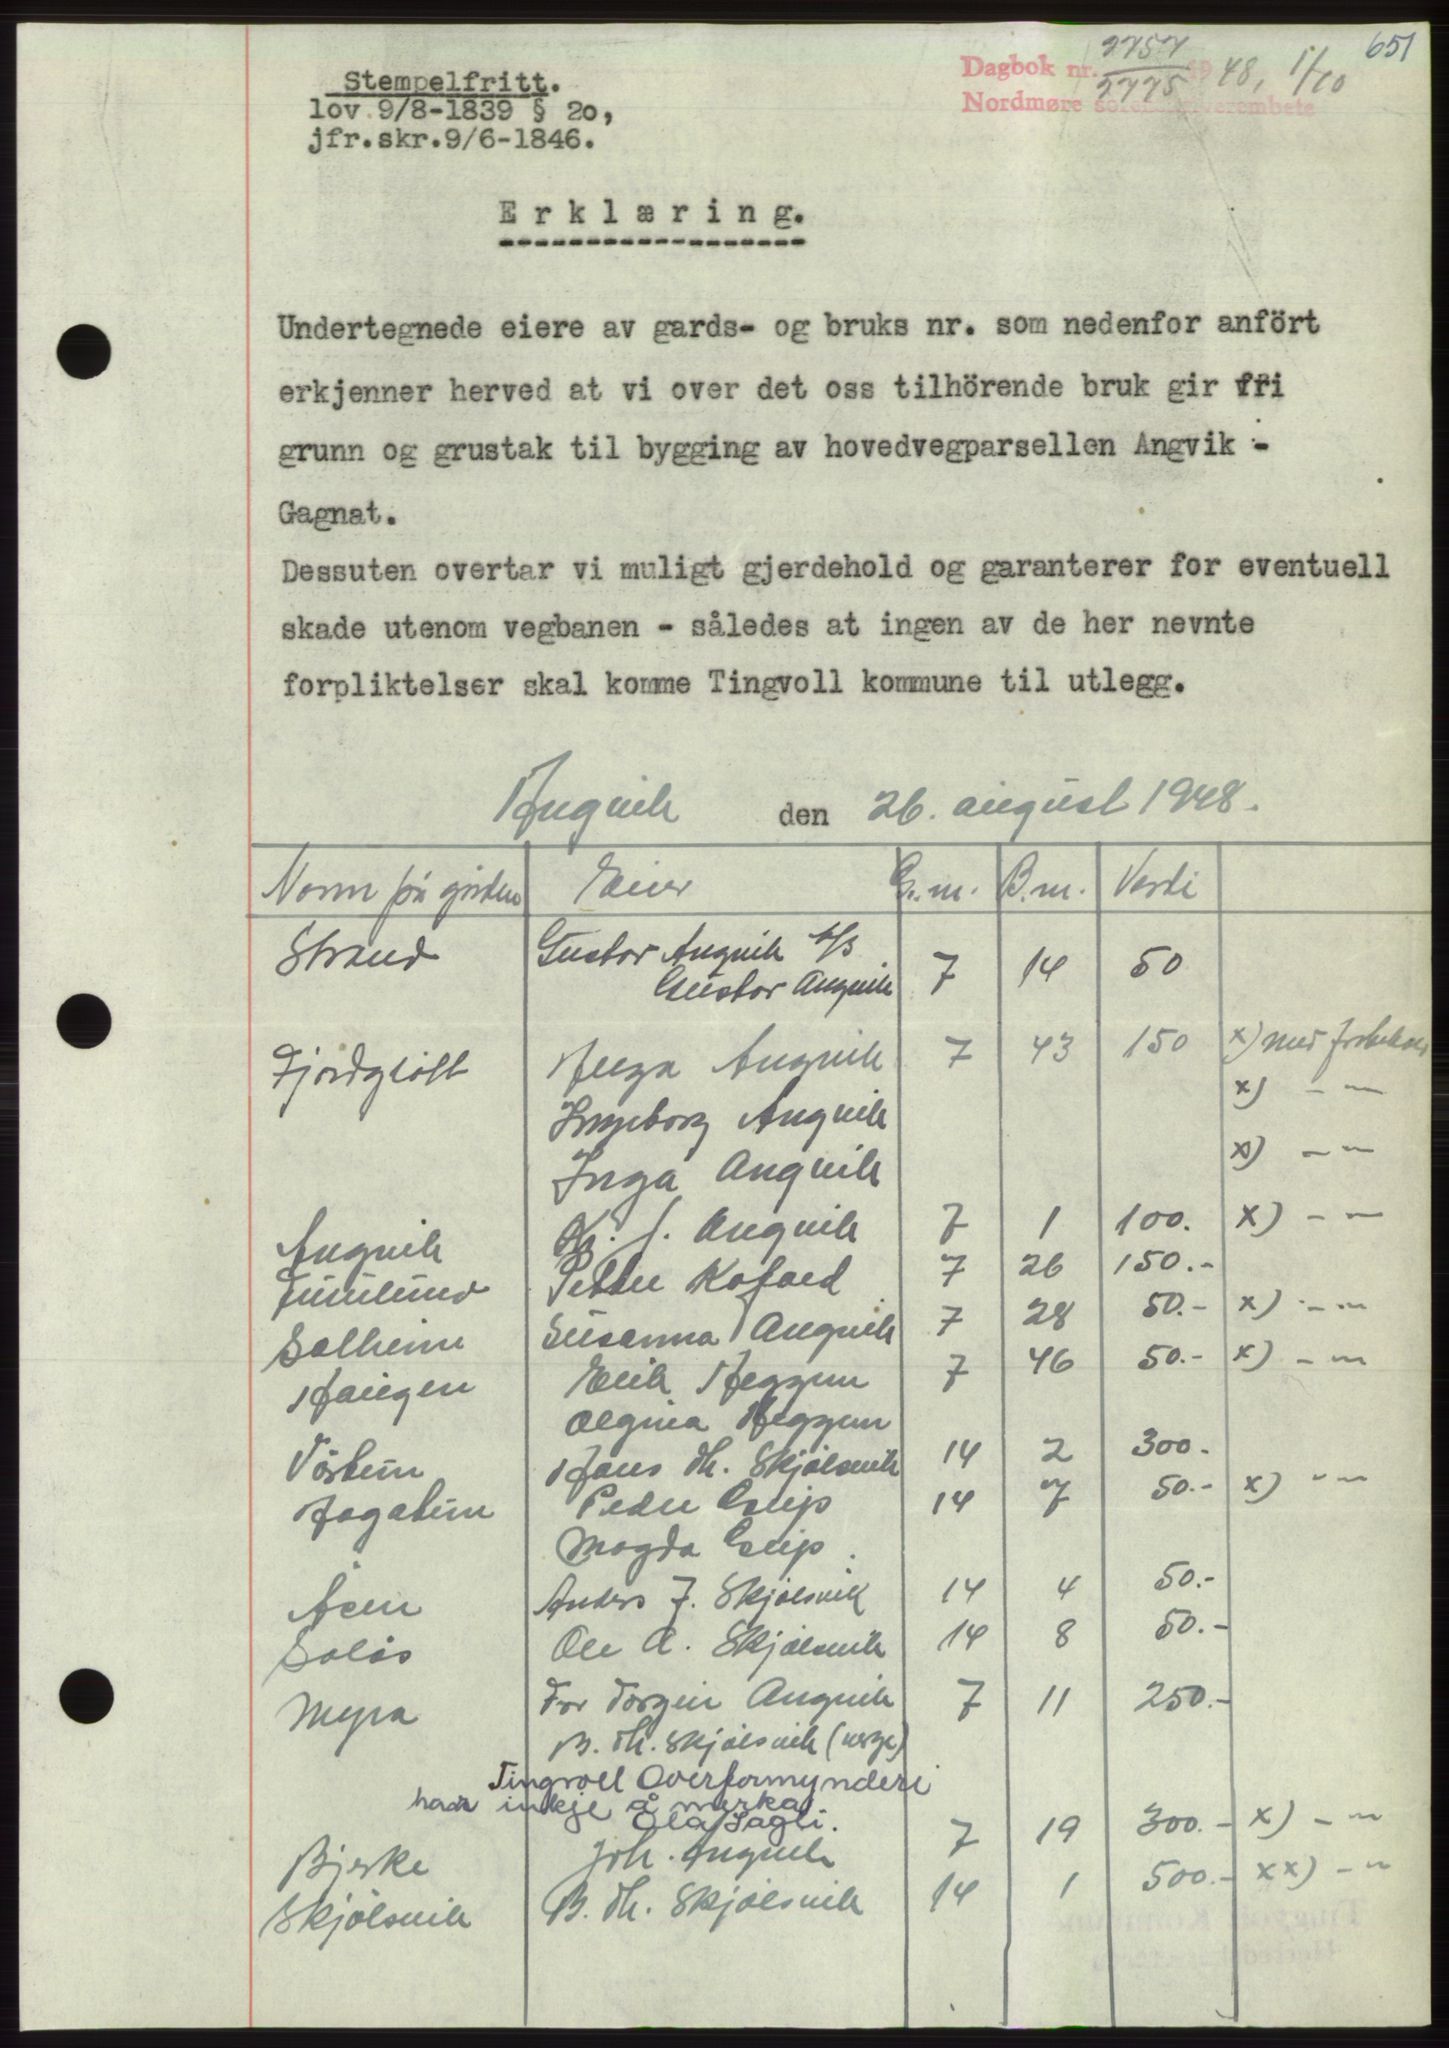 651
Dagbok nr. 2757 1948, 1/10
2775
Nordmøre sorenskriverembete
Stempelfritt.
lov 9/8-1839 § 20,
jfr.skr.9/6-1846.
Erklæring.
Undertegnede eiere av gards- og bruks nr. som nedenfor anfört
erkjenner herved at vi over det oss tilhörende bruk gir fri
grunn og grustak til bygging av hovedvegparsellen Angvik -
Gagnat.
Dessuten overtar vi muligt gjerdehold og garanterer for eventuell
skade utenom vegbanen - således at ingen av de her nevnte
forpliktelser skal komme Tingvoll kommune til utlegg.
Angvik den 26. august 1948.
Navn på gården Eier G.nr. B.nr. Verdi
Strand Gustav Angvik 7 14 50
Gustav Angvik
Fjordgløtt Angvik 7 43 150 x) med forbehold
Ingeborg Angvik x) - " -
Inga Angvik x) - " -
Angvik Angvik 7 1 100. x) - " -
Furulund Petter Kofoed 7 26 150.-
Solheim Susanna Angvik 7 28 50.- x) - " -
Haugen Erik Heggem 7 46 50.- x) - " -
Olgina Heggem
Hans Th. Skjølsvik 14 2 300.-
Hagatun Peder Gulp 14 7 50.- x) - " -
Magda
Åsen Anders J. Skjølsvik 14 4 50.-
Solås Ole A. Skjølsvik 14 8 50.-
Myra For Jørgen Angvik 7 11 250.-
B. Th. Skjølsvik (verge)
Tingvoll Overformynderi
har inkje å merka
Ola Sagli.
Bjerke Joh. Angvik 7 19 300.- x) - " -
Skjølsvik B. Th. Skjølsvik 14 1 500.- xx) - " -